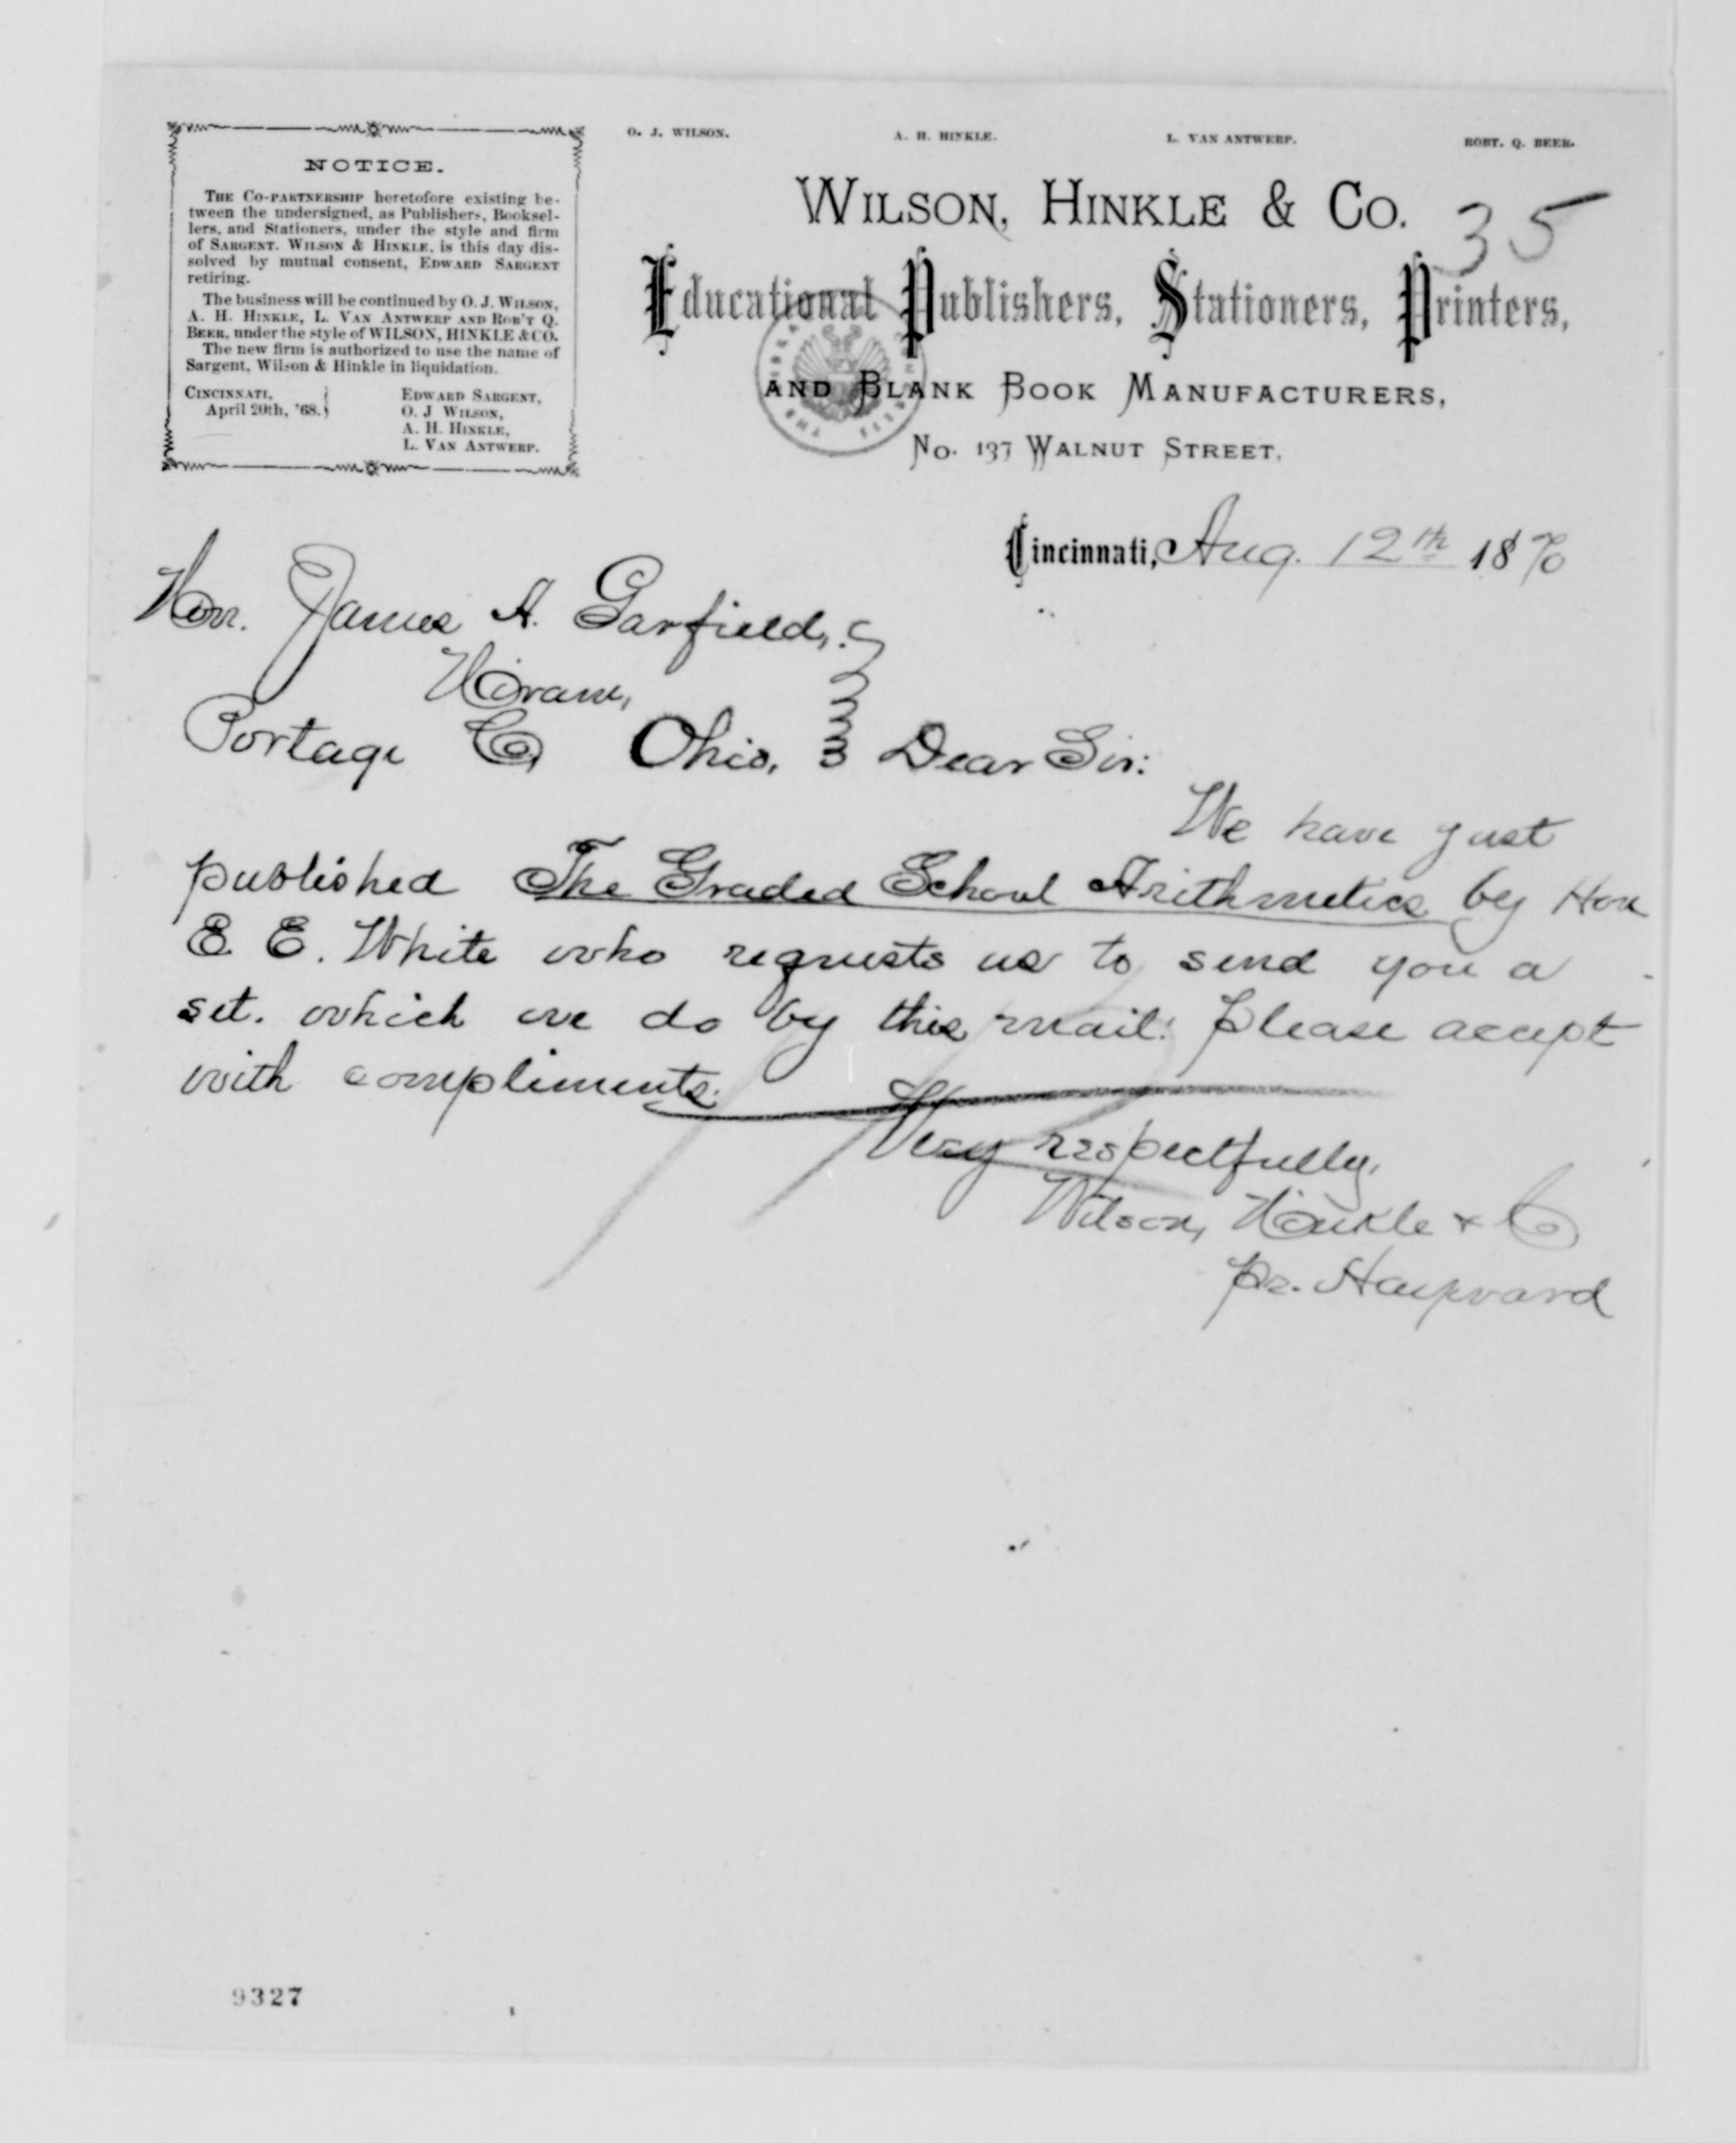 NOTICE.
THE CO-PARTNERSHIP heretofore existing be-
tween the undersigned, as Publishers, Booksel-
lers, and Stationers, under the style and firm
of SARGENT, WILSON & HINKLE, is this day dis-
solved by mutual consent, EDWARD SARGENT
retiring.
The business will be continued by O. J. WILSON,
A. H. HINKLE, L. VAN ANTWERP AND ROB'T Q.
BEER, under the style of WILSON, HINKLE & CO.
The new firm is authorized to use the name of
Sargent, Wilson & Hinkle in liquidation.
CINCINNATI,
April 20th, '68.
EDWARD SARGENT,
O. J WILSON,
A. H. HINKLE,
L. VAN ANTWERP.
O. J. WILSON. A. H. HINKLE. L. VAN ANTWERP. ROBT. Q. BEER.
WILSON, HINKLE & CO.
35
Educational Publishers, Stationers, Printers,
AND BLANK BOOK MANUFACTURERS,
No. 137 WALNUT STREET,
Cincinnati, Aug. 12th 1870
Hon. James A. Garfield,
Hiram,
Portage Co Ohio, Dear Sir:
We have just
published The Graded School Arithmetics by Hon
E. E. White who requests us to send you a
set. which we do by this mail. Please accept
with compliments.
Very respectfully,
Wilson, Hinkle & Co
pr. Hayward
9327